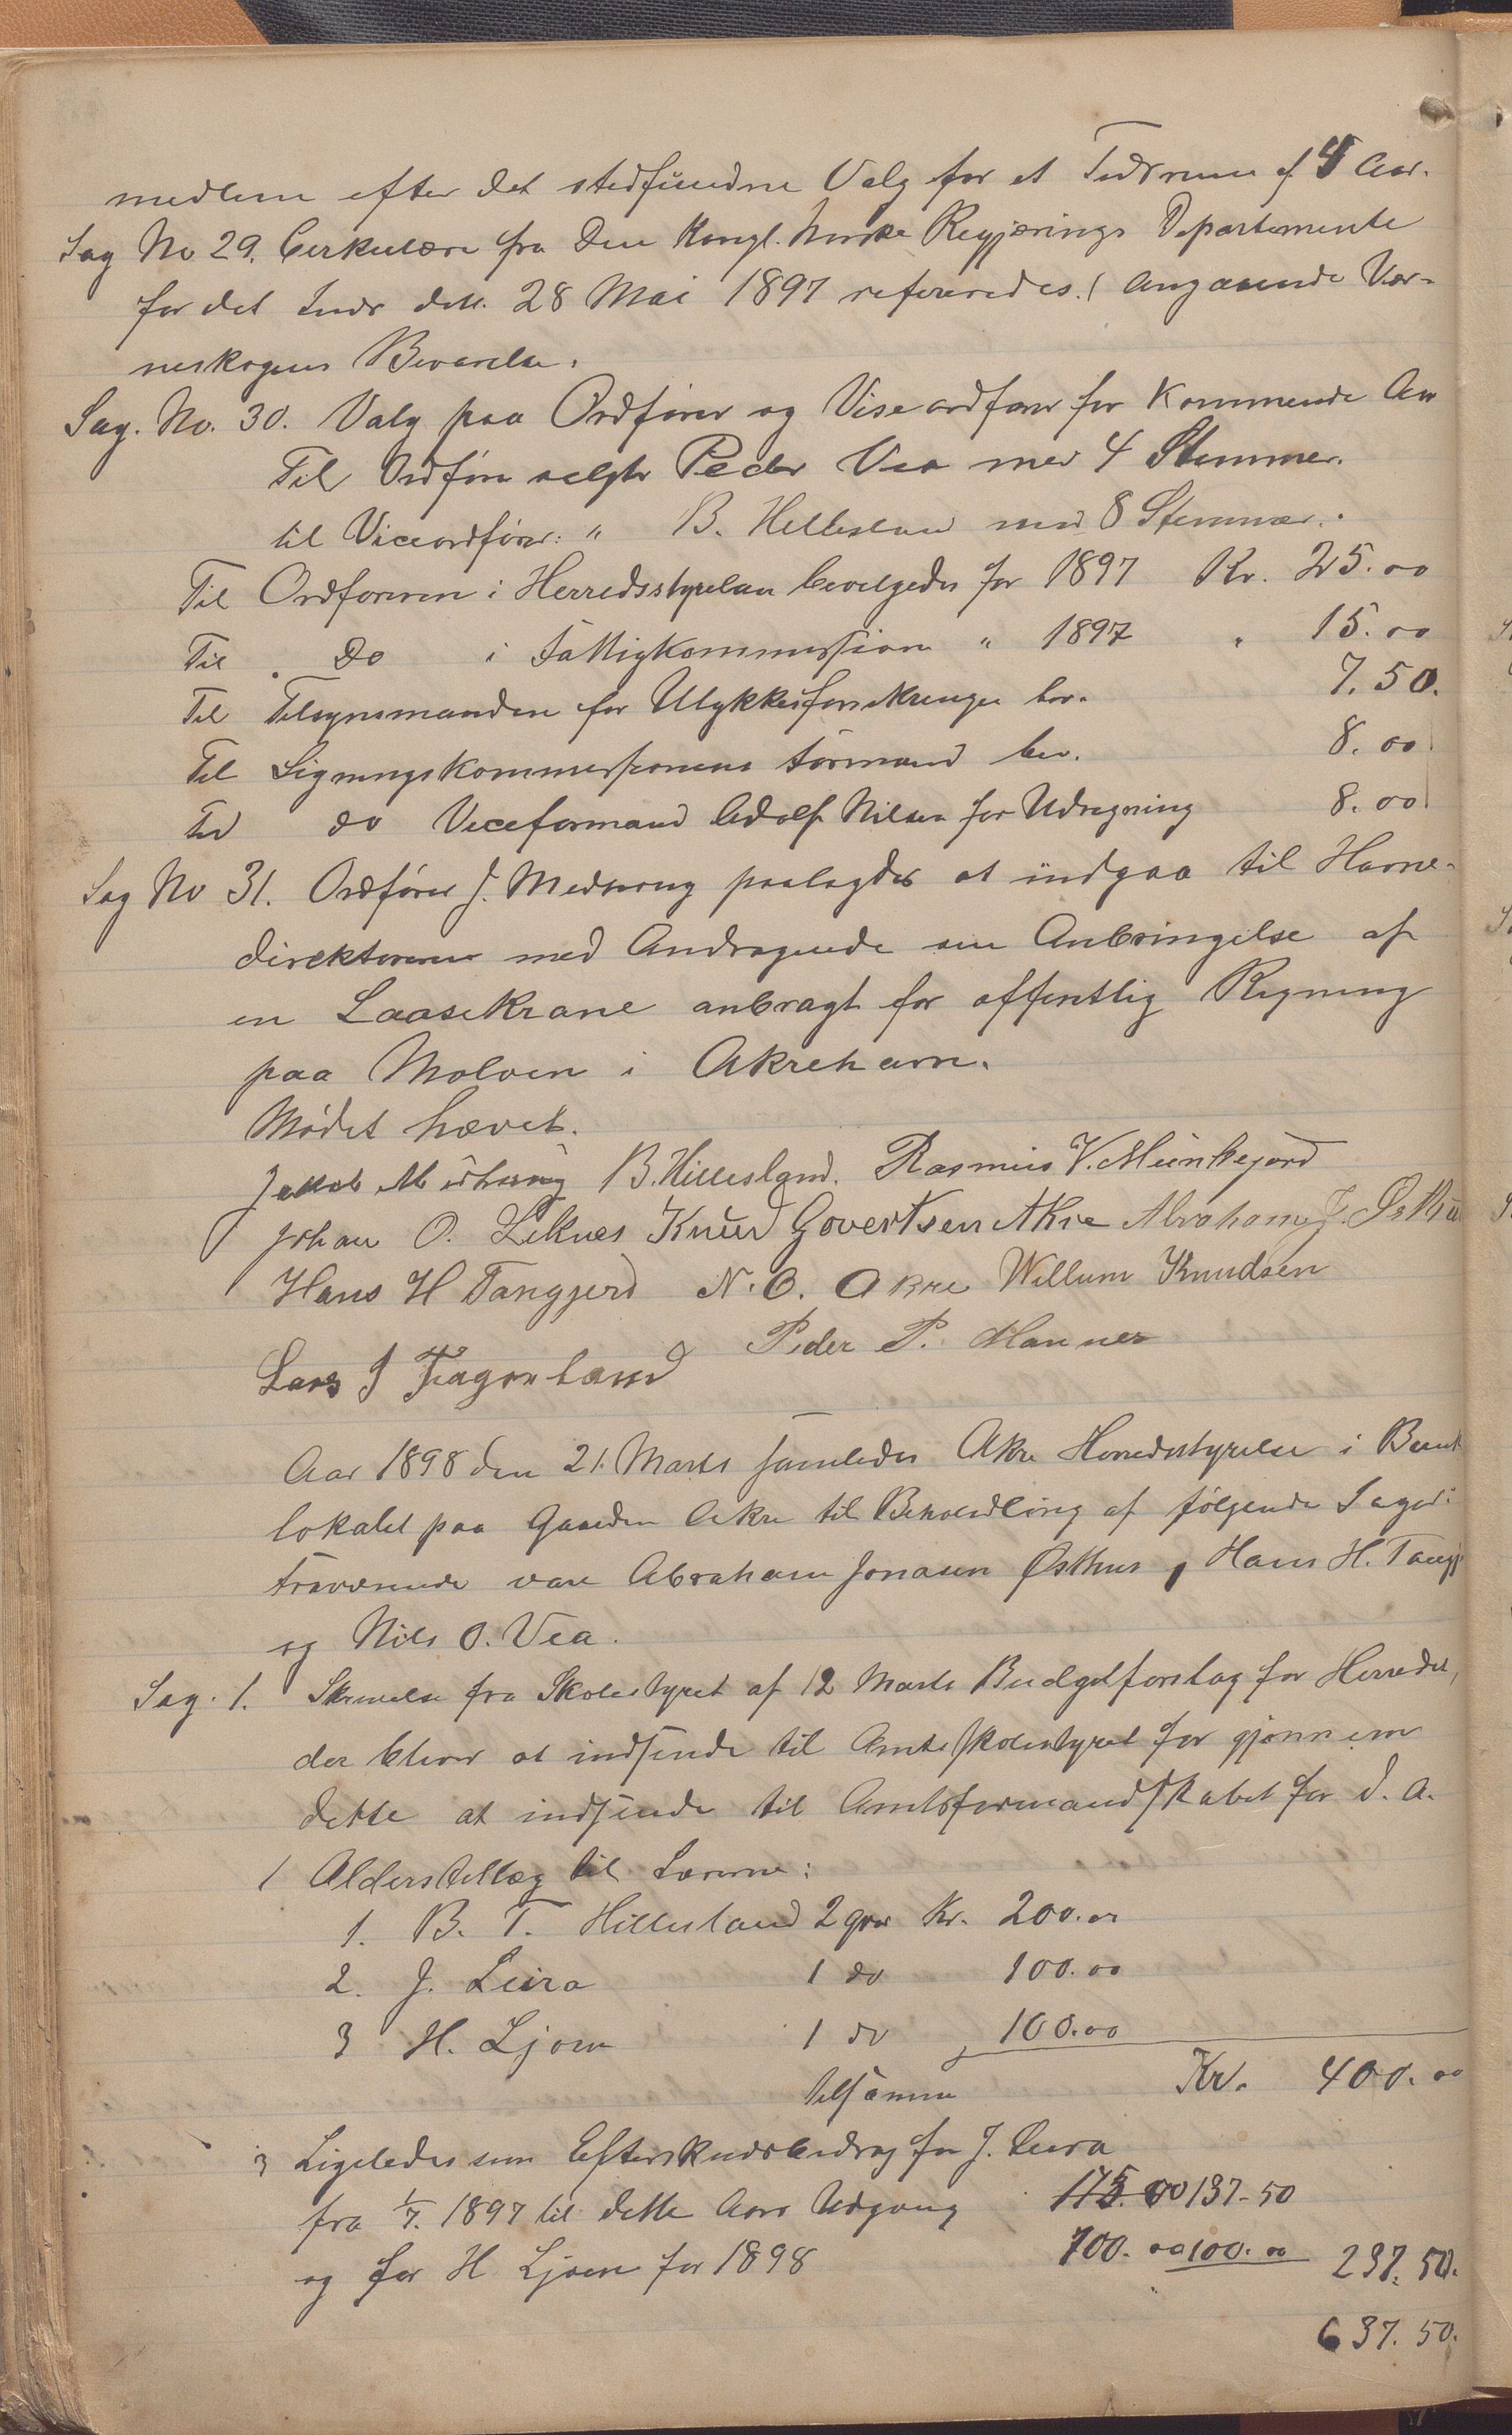 medlem efter det stedfundne Valg for et Tidsrum af 4 Aar.
Sag No 29. Cirkulære fra Den Kongl. Norske Regjerings Departemente
for det Indr dat. 28 Mai 1897 refereredes. (angaaende Vær-
neskogens Bevarelse.
Sag. No. 30. Valg paa Ordfører og Viseordfører for Kommende Aar
Til Ordfører valgtes Peder Vea med 4 Stemmer.
til Viceordfører: " B. Hillesland med 8 Stemmer.
Til Ordføreren i Herredsstyrelsen bevilgedes for 1897 Kr. 25.00
Til Do i Fattigkommissionen " 1897 " 15.00
Til Tilsynsmanden for Ulykkesforsikringen bev. 7.50.
Til Ligningskommissionens Formand bev. 8.00
Til do Viceformand Adolf Nilsen for Udregning 8.00
Sag No 31. Ordfører J. Medhaug paalagdes at indgaa til Havne-
direktøren med Andragende om Anbringelse af
en Laasekrane anbragt for offentlig Regning
paa Moloen i Akrehavn.
Mødet hævet.
Jakob Medhaug B. Hillesland. Rasmus V. Munkejord
Johan O. Liknes Knud Govertsen Akre Abraham J. Østhu
Hans H Tangjerd N. O. Akre Willum Knudsen
Lars J Fagerland Peder P. Mannes
Aar 1898 den 21. Marts samledes Akre Herredsstyrelse i Bank
lokalet paa Gaarden Akre til Behandling af følgende Sager:
Fraværende vare Abraham Jonasen Østhus, Hans H. Tangj
og Nils O. Vea.
Sag. 1. Skrivelse fra Skolestyret af 12 Marts Budgetforslag for Herredet,
der bliver at indsende til Amtsskolestyret for gjennem
dette at indsende til Amtsformandskabet for d. A.
1 Alderstillæg til Lærerne:
1. B. T. Hillesland 2 gr Kr. 200.00
2. J. Leira 1 do 100.00
3 H. Ljoen 1 do 100.00
tilsammen Kr. 400.00
3 Ligeledes som Efterskudsbidrag for J. Leira
fra 1/7. 1897 til dette Aars Udgang 175.00 137-50
og for H Ljoen for 1898 100.00 100.00 237.50.
637.50.